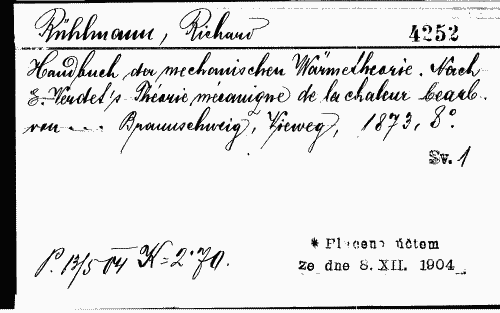 Rühlmann, Richard 4252
Handbuch der mechanischen Wärmetheorie. Nach
E. Verdet's Théorie mécanique de la chaleur bearb.
von ... Braunschweig, Vieweg, 1873, 8°.
Sv. 1
P. 13/5 04 K = 2·70.
* Placeno účtem
ze dne 8. XII. 1904